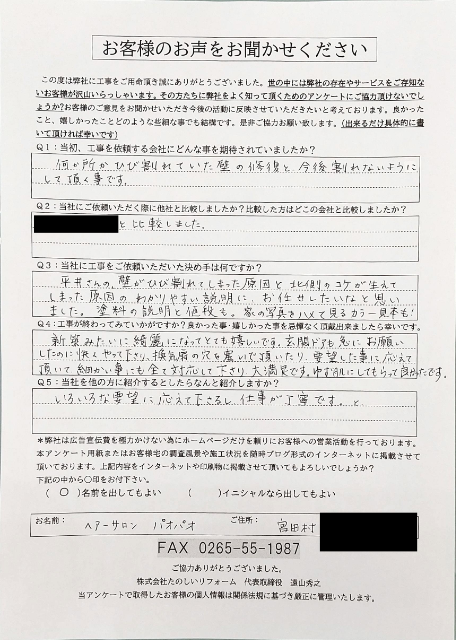 お客様のお声をお聞かせください
この度は弊社に工事をご用命頂き誠にありがとうございました。世の中には弊社の存在やサービスをご存知ない
お客様が沢山いらっしゃいます。その方たちに弊社をよく知って頂くためのアンケートにご協力頂けないでし
ょうか?お客様のご意見をお聞かせいただき今後の活動に反映させていただきたいと考えております。良かった
こと、嬉しかったことどのような些細な事でも結構です。是非ご協力お願い致します。(出来るだけ具体的に書
いて頂ければ幸いです)
Q1：当初、工事を依頼する会社にどんな事を期待されていましたか?
何か所かひび割れていた壁の修復と今後割れないように
して頂く事です。
Q2：当社にご依頼いただく際に他社と比較しましたか?比較した方はどこの会社と比較しましたか?
と比較しました。
Q3：当社に工事をご依頼いただいた決め手は何ですか?
平井さんの、壁がひび割れてしまった原因と北側のコケが生えて
しまった原因のわかりやすい説明に、お任せしたいなと思い
ました。塗料の説明と値段も。家の写真をパソコンで見るカラー見本も!
Q4：工事が終わってみていかがですか?良かった事・嬉しかった事を忌憚なく頂戴出来ましたら幸いです。
新築みたいに綺麗になってとても嬉しいです。玄関ドアも急にお願い
したのに快くやって下さり、換気扇の穴を塞いで頂いたり、要望した事に応えて
頂いて細かい事にも全て対応して下さり、大満足です。
Q5：当社を他の方に紹介するとしたらなんと紹介しますか?
いろいろな要望に応えて下さるし仕事が丁寧です。と
＊弊社は広告宣伝費を極力かけない為にホームページだけを頼りにお客様への営業活動を行っております。
本アンケート用紙またはお客様宅の調査風景や施工状況を随時ブログ形式のインターネットに掲載させて
頂いております。上記内容をインターネットや印刷物に掲載させて頂いてもよろしいでしょうか?
下記の中から○印をお付下さい。
( ○ )名前を出してもよい ( )イニシャルなら出してもよい
お名前： ヘアーサロン パオパオ ご住所： 宮田村
FAX 0265-55-1987
ご協力ありがとうございました。
株式会社たのしいリフォーム 代表取締役 遠山秀之
当アンケートで取得したお客様の個人情報は関係法規に基づき厳正に管理いたします。